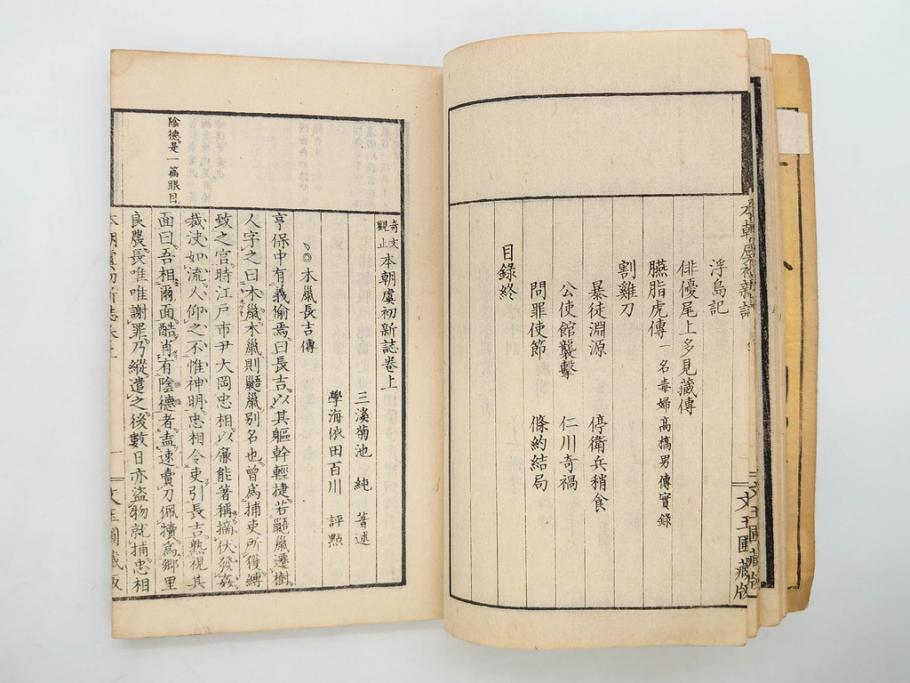 本朝虞初新誌
浮島記
俳優尾上多見藏傳
臙脂虎傳 一名毒婦高橋男傳實錄
割雞刀
暴徒淵源 停衛兵稍食
公使館襲擊 仁川奇禍
問罪使節 條約結局
目錄終
文玉圃藏版
奇文觀止本朝虞初新誌卷上
三溪菊池 純 著述
學海依田百川 評點
本巢長吉傳
亨保中有義偷焉曰長吉以其軀幹輕捷若鼯巢遷樹
人字之曰木巢木巢則鼯巢別名也曾為捕吏所獲縛
致之官時江戶市尹大岡忠相以廉能著稱摘伏發姦
裁決如流人仰之不惟神明忠相令吏引長吉熟視其
面曰吾相爾面酷肖有陰德者盍速賣刀佩犢為鄉里
良農長唯唯謝罪乃縱遣之後數日亦盜物就捕忠相
陰德是一篇眼目
本朝虞初新誌卷上
文玉圃藏版